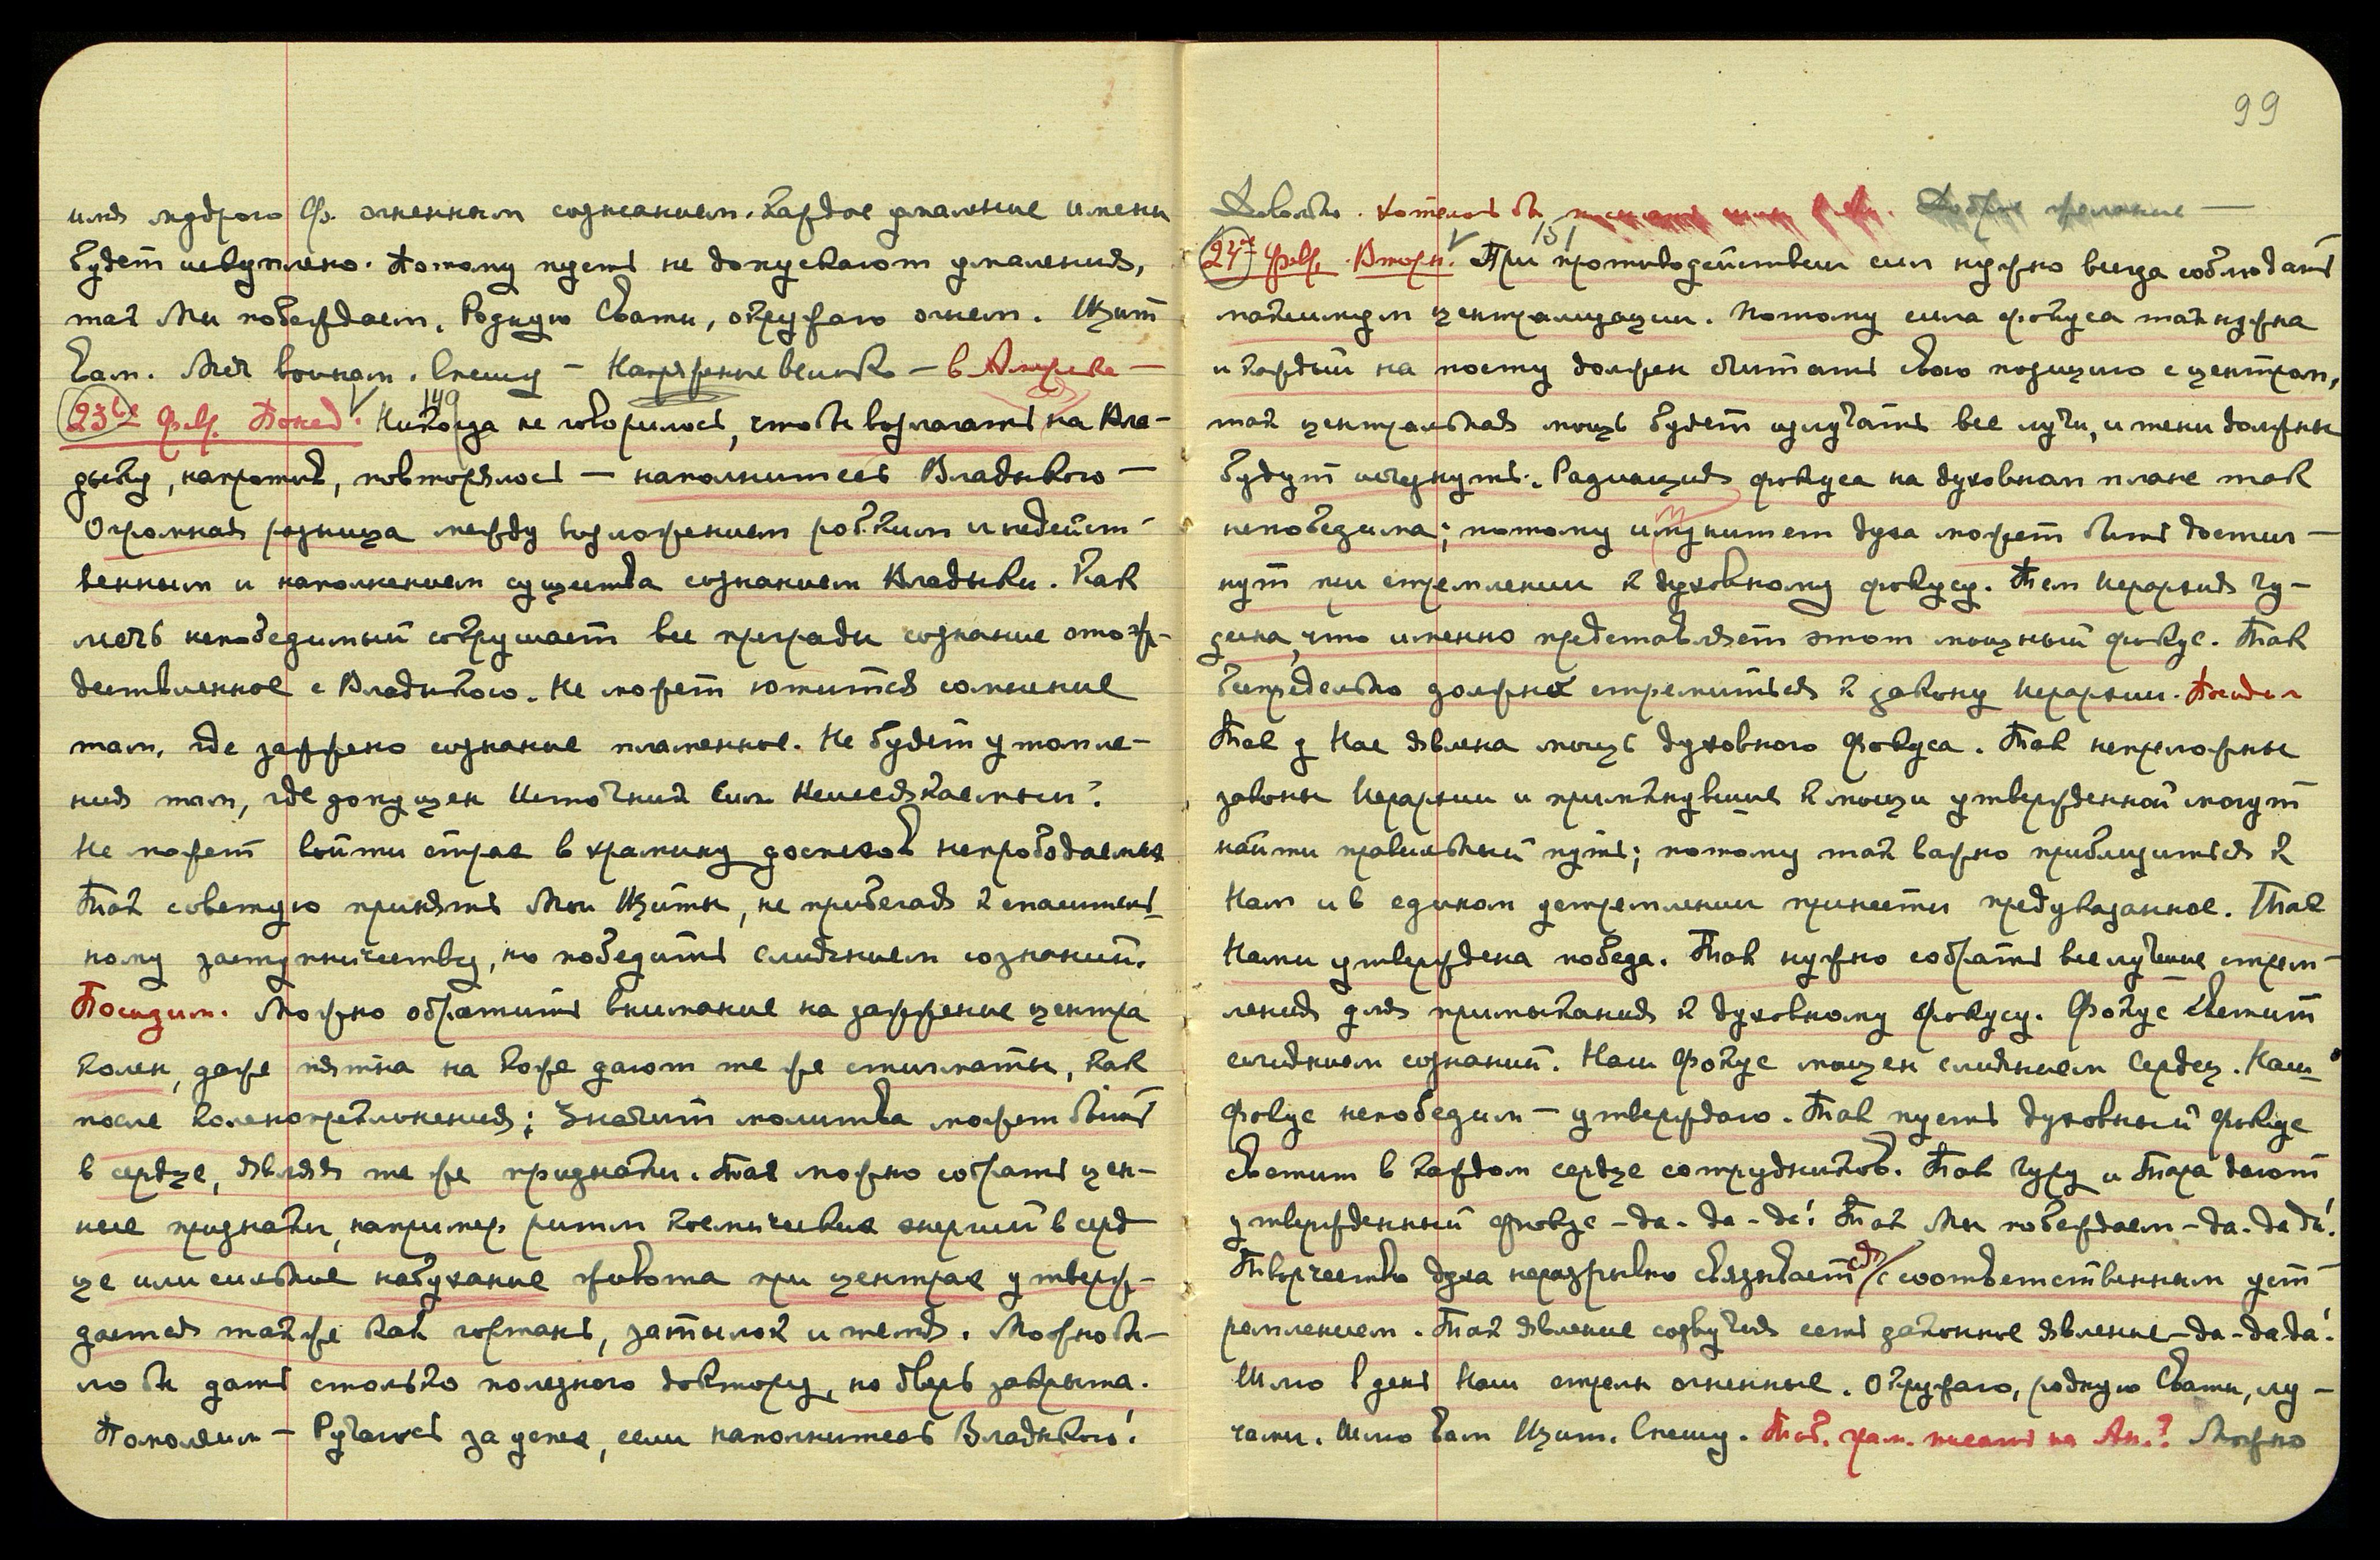 имя мудрого Ф. огненным сознанием. Каждое умаление имени
будет искуплено. Потому пусть не допускают умаления,
так Мы побеждаем. Родную Свати, окружаю огнем. Щит
Вам. Меч воинам. Спешу – Напряжение велико – в Америке –
23е Фев. Понед. 149 Никогда не говорилось, чтобы возлагать на Вла-
дыку, напротив, повторялось – наполнитесь Владыкою –
Огромная разница между возложением робким и недейст-
венным и наполнением существа сознанием Владыки. Как
мечь непобедимый сокрушает все преграды сознание отож-
дествленное с Владыкою. Не может ютиться сомнение
там, где зажжено сознание пламенное. Не будет утомле-
ния там, где допущен Источник Сил Неиссякаемый.
Не может войти страх в храмину доспехов непрободаемых
Так советую принять Мои Щиты, не прибегая к спаситель-
ному заступничеству, но победить слиянием сознаний.
Посидим. Можно обратить внимание на зажжение центра
колен, даже пятна на коже дают те же стигматы, как
после коленопреклонения; Значит молитва может быть
в сердце, являя те же признаки. Так можно собрать цен-
ные признаки, например, ритм космических энергий в серд
це или сильное набухание живота при центрах утверж-
дается также как гортань, затылок и темя. Можно бы-
ло бы дать столько полезного доктору, но дверь закрыта.
Помолчим – Ручаюсь за успех, если наполнитесь Владыкою!
99
Довольно. Хотелось бы
24е Фев. Вторн. 151 При противодействии сил нужно всегда соблюдать
максимум централизации. Потому сила фокуса так нужна
и каждый на посту должен считать свою позицию с центром,
так центральная мощь будет излучать все лучи, и тени должны
будут исчезнуть. Радиация фокуса на духовном плане так
непобедима; потому и магнитем духа может быть достиг-
нут при стремлении к духовному фокусу. Тем Иерархия чу-
десна, что именно представляет этот мощный фокус. Так
беспредельно должны стремиться к закону Иерархии. Посидим
Так у Нас явлена мощь духовного Фокуса. Так непреложны
законы Иерархии и примкнувшие к мощи утвержденной могут
найти правильный путь; потому так важно приблизиться к
Нам и в едином устремлении принести предуказанное. Так
Нами утверждена победа. Так нужно собрать все лучшие стрем-
ления для примыкания к духовному Фокусу. Фокус светит
слиянием сознаний. Наш Фокус мощен слиянием Сердец. Наш
Фокус непобедим – утверждаю. Так пусть духовный Фокус
светит в каждом сердце сотрудников. Так Гуру и Тара дают
утвержденный фокус – да – да – да! Так Мы побеждаем – да – да да!
Творчество духа неразрывно связывается с соответственным уст-
ремлением. Так явление созвучия есть законное явление – да – да да!
Шлю в день Наш стрелы огненные. Окружаю, родную Свати, лу-
чами. Шлю Вам Щит. Спешу. Можно